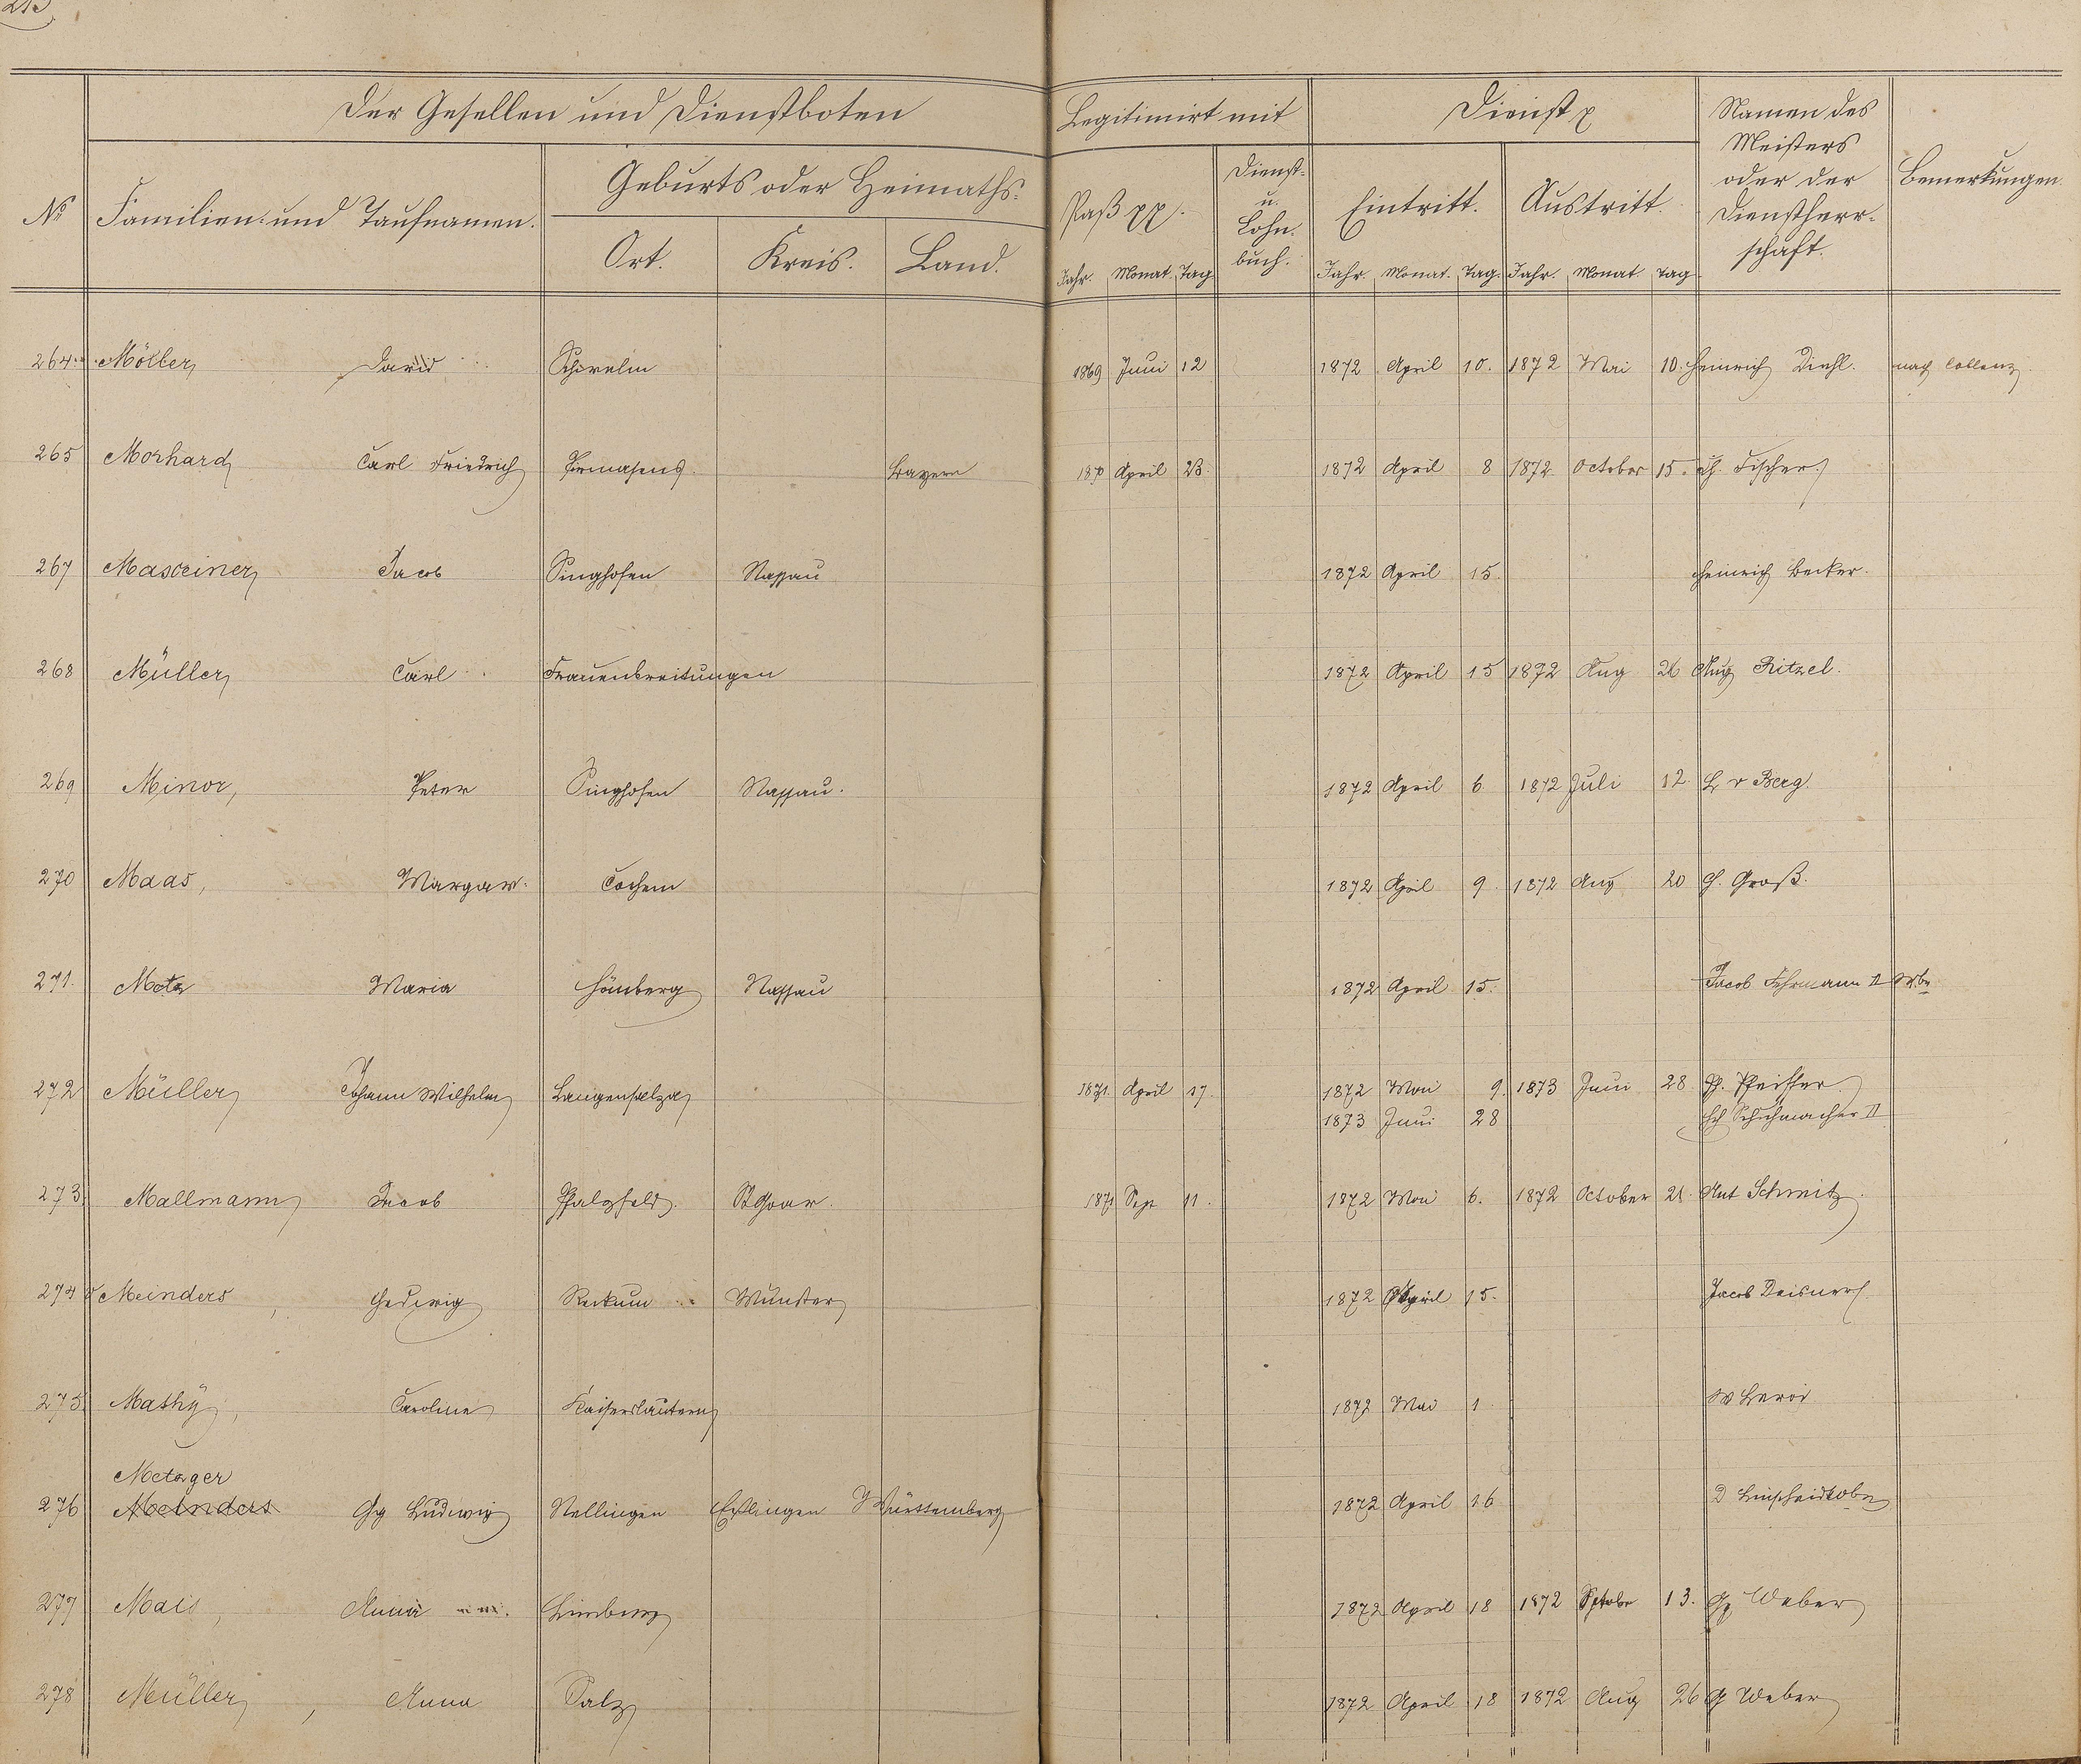 Der Gesellen und Dienstboten Legitimirt mit Dienst Namen des
Meisters
oder der
Dienstherr-
schaft. Bemerkungen.
No Familien- und Taufnamen. Geburts oder Heimaths- Paß pp. Dienst-
u.
Lohn-
buch. Eintritt. Austritt.
Ort. Kreis. Land. Jahr. Monat. Tag Jahr. Monat. Tag. Jahr. Monat. Tag
264. Möller, David 1869 Juni 12 1872 April 10. 1872 Mai 10. Heinrich Diehl. nach
265 Morhard Carl Friedrich Pirmasens. Bayern April 23. 1872 April 8 1872 October 15. Fischer
267 Jacob Singhofen Nassau 1872 April 15. Heinrich Becker.
268 Müller Carl Frauenbreitungen 1872 April 15 1872 Aug 26 Aug Ritzel.
269 Minor, Peter Singhofen Nassau. 1872 April 6 1872 Juli 12. v Berg.
270 Maas, Margar. Cochem 1872 April 9. 1872 Aug 20 Groß.
271. Metz Maria Hömberg Nassau 1872 April 15. Jacob Fehrmann II Wbe
272 Müller Johann Wilhelm Langensalza 1871. April 17. 1872 Mai 9. 1873 Juni 28 Ph. Pfeiffer
1873 Juni 28 Schuhmacher II
273. Mallmann Jacob Pfalzfeld. St Goar. 1871 Sept 11. 1872 Mai 6. 1872 October 21. Ant Schmitz.
274 Meinders Hedwig Münster 1872 April 15. Jacob
275. Mathÿ, Caroline Kaiserslautern 1872 Mai 1. W
Metzger
276 Meinders Gg Ludwig Nellingen Eßlingen Württemberg 1872 April 16 D
277 Mais, Anna Limburg 1872 April 18 1872 13. Weber
278 Müller, Anna Salz 1872 April 18 1872 Aug 26 Weber